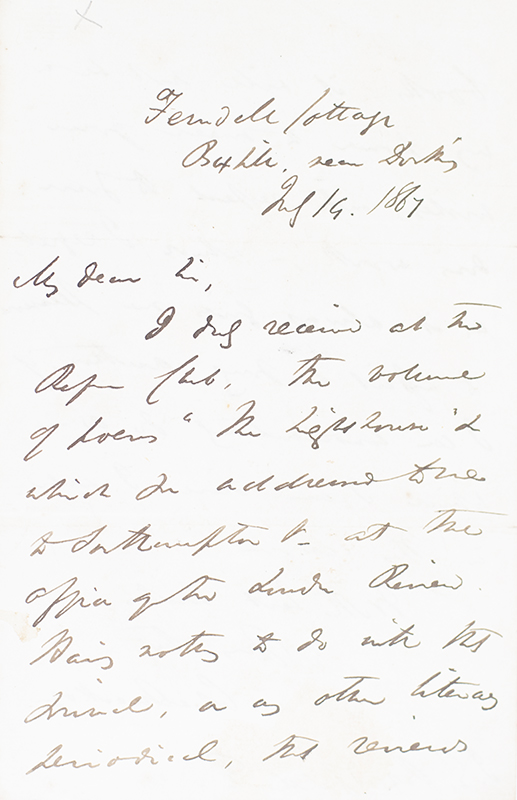 Ferndell Cottage
Boxhill, near Dorking
July 19. 1867
My dear Sir,
I duly received at the
Reform Club, the volume
of poems "The Lighthouse" &c
which you addressed to me
to Southampton St at the
office of the London Review.
Having nothing to do with that
Journal, or any other literary
periodical, the reviews